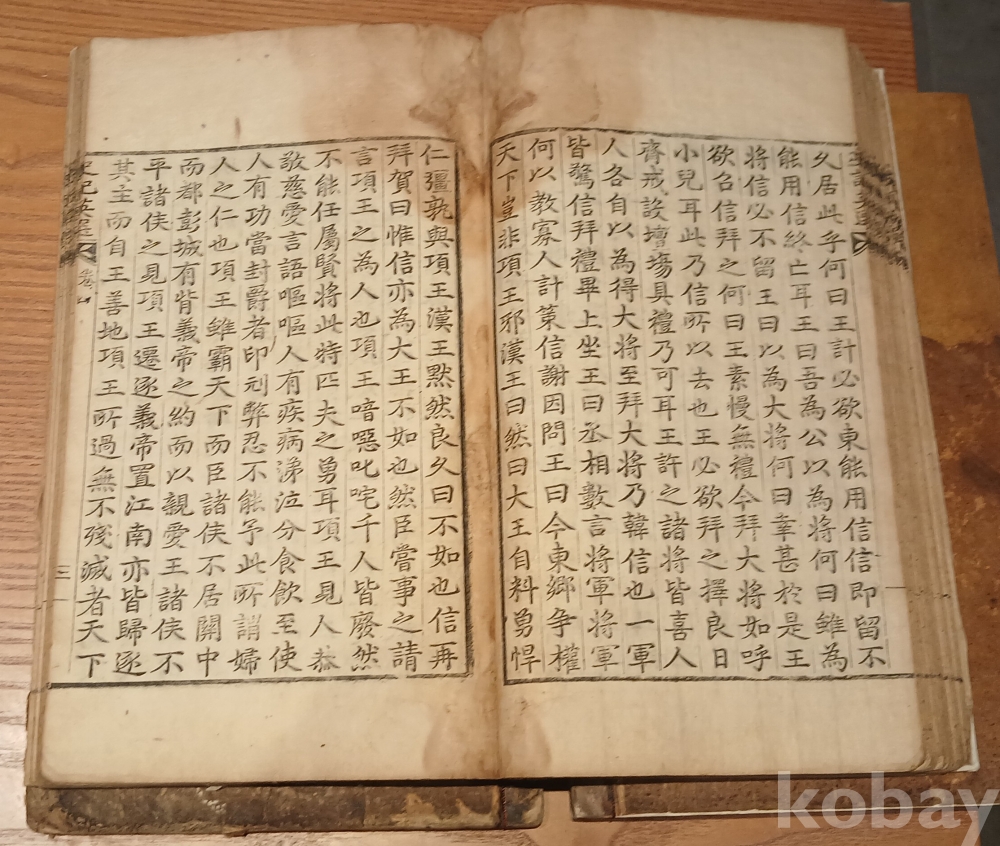 久居此乎何曰王計必欲東能用信信即留不
能用信終亡耳王曰吾為公以為将何曰雖為
将信必不留王曰以為大将何曰幸甚於是王
欲召信拜之何曰王素慢無禮今拜大将如呼
小兒耳此乃信所以去也王必欲拜之擇良日
齋戒設壇場具禮乃可耳王許之諸将皆喜人
人各自以為得大将至拜大将乃韓信也一軍
皆驚信拜禮畢上坐王曰丞相數言将軍将軍
何以教寡人計策信謝因問王曰今東鄉争權
天下豈非項王邪漢王曰然曰大王自料勇悍
仁彊孰與項王漢王默然良久曰不如也信再
拜賀曰惟信亦為大王不如也然臣嘗事之請
言項王之為人也項王喑噁叱咤千人皆廢然
不能任屬賢将此特匹夫之勇耳項王見人恭
敬慈愛言語嘔嘔人有疾病涕泣分食飲至使
人有功當封爵者印刓弊忍不能予此所謂婦
人之仁也項王雖霸天下而臣諸侯不居關中
而都彭城有背義帝之約而以親愛王諸侯不
平諸侯之見項王遷逐義帝置江南亦皆歸逐
其主而自王善地項王所過無不殘滅者天下
史記英選 卷四 三
kobay